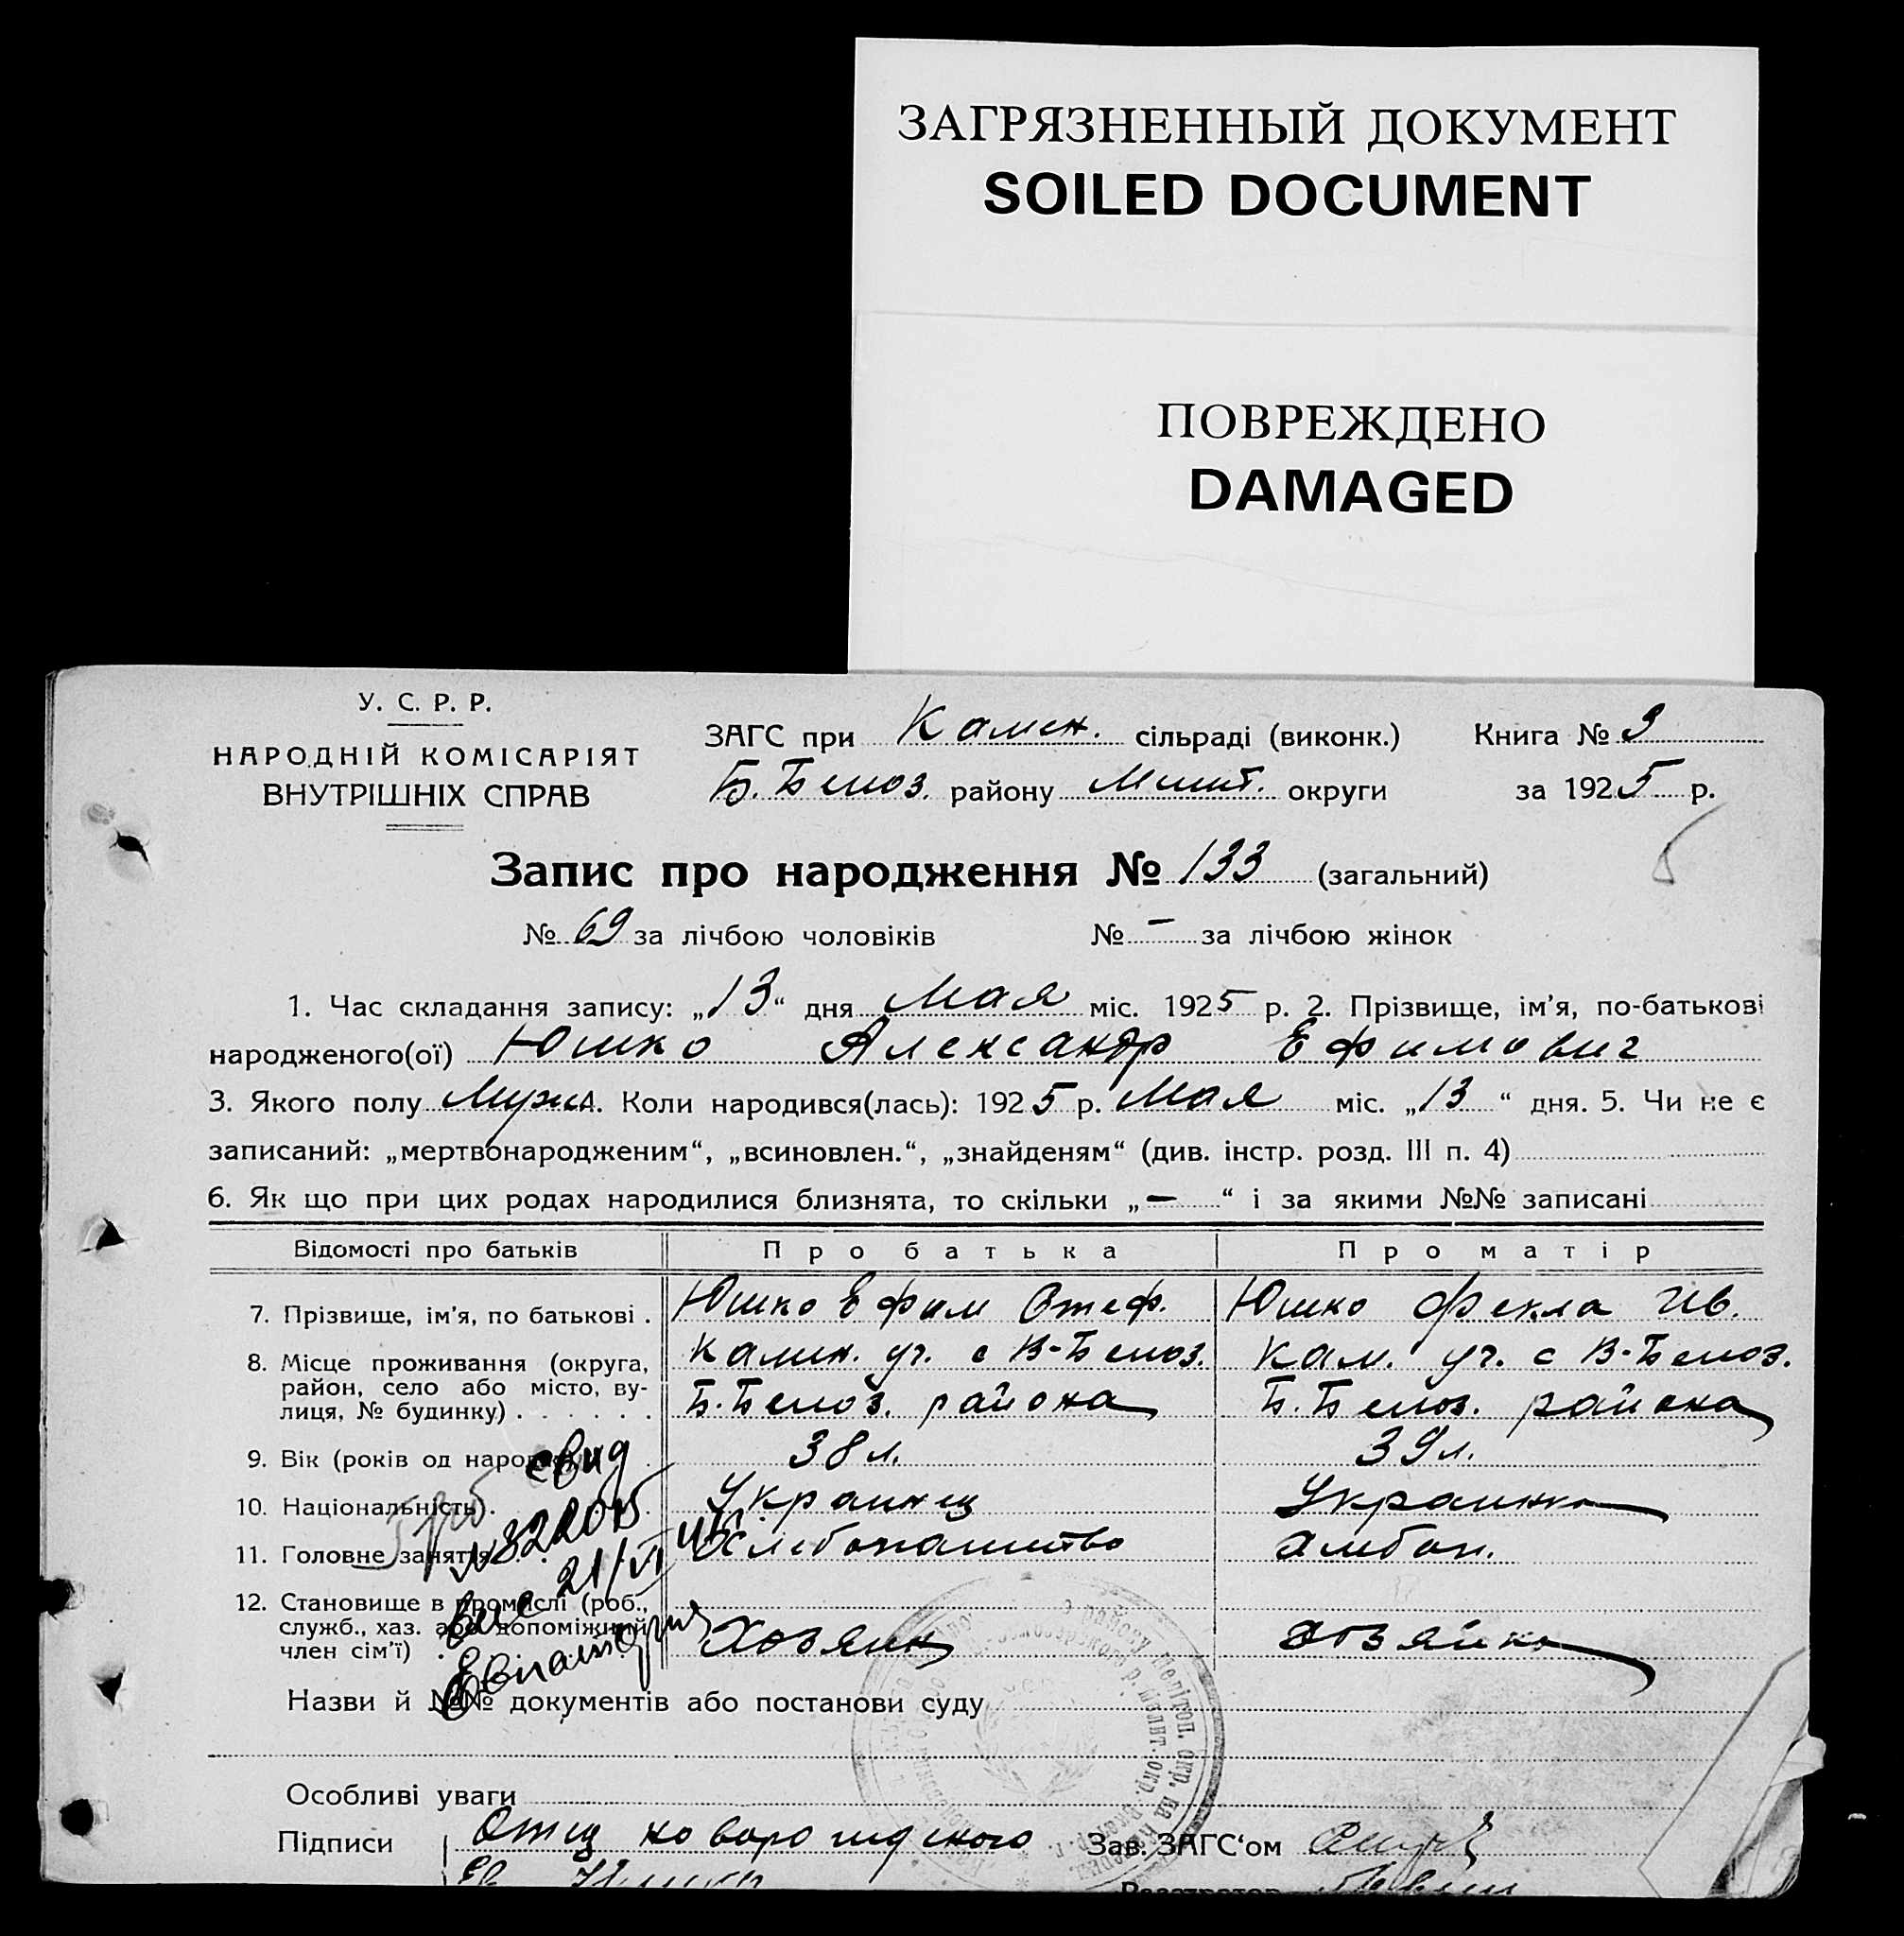 ЗАГРЯЗНЕННЫЙ ДОКУМЕНТ
SOILED DOCUMENT
ПОВРЕЖДЕНО
DAMAGED
У. С. Р. Р.
НАРОДНІЙ КОМІСАРІЯТ
ВНУТРІШНІХ СПРАВ
ЗАГС при Камен. сільраді (виконк.) Книга № 3
Б. Белоз. району Мелит. округи за 1925 р.
Запис про народження № 133 (загальний)
№ 69 за лічбою чоловіків № – за лічбою жінок
1. Час складання запису: „13“ дня Мая міс. 1925 р. 2. Прізвище, ім’я, по-батькові
народженого(ої) Юшко Александр Ефимович
3. Якого полу Мужс. Коли народився(лась): 1925 р. Мая міс. „13“ дня. 5. Чи не є
записаний: „мертвонародженим“, „всиновлен.“, „знайденям“ (див. інстр. розд. III п. 4)
6. Як що при цих родах народилися близнята, то скільки „—“ і за якими №№ записані
Відомості про батьків Про батька Про матір
7. Прізвище, ім’я, по батькові . Юшко Ефим Стеф. Юшко Фекла Ив.
8. Місце проживання (округа, район, село або місто, вулиця, № будинку) . . . . . .
Камен. уч. с В-Белоз. Кам. уч. с В-Белоз.
Б. Белоз. района Б. Белоз. района
9. Вік (років од народж.) 38 л. 39 л.
10. Національність . Украинец Украинка
11. Головне заняття Хлебопашество Хлебоп.
12. Становище в промислі (роб.,
служб., хаз. або допоміжний
член сім’ї) . Хозяин хозяйка
свид
№ 322015
21/VI
Евпатория
Назви й №№ документів або постанови суду
Особливі уваги
Підписи Отец новорожденого Зав. ЗАГС‘ом
Реєстратор